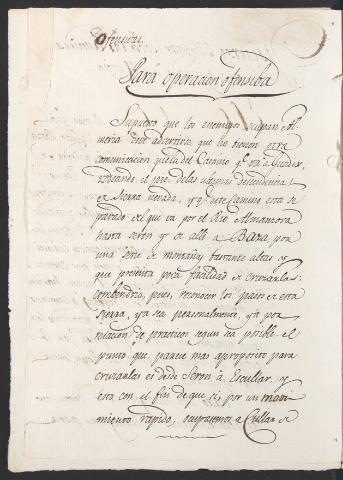 Ofensivas.
Para operacion ofensiba
Supuesto que los enemigos ocupan Al-
meria debe advertirse que no tienen otra
comunicacion que la del Camino qe. va a Guadix
rodeando el pie de las ultimas descendencias
de Sierra nevada, y qe. este Camino esta se
parado del que va por el Rio Almanzora
hasta seron y de alli a Baza, por
una serie de montañas bastante altas y
que presenta poca facilidad de cruzarla:
combendria, pues, reconocer los pasos de esta
sierra, ya sea personalmente, ya por
relacion de practicos segun sea posible. el
punto que parece mas aproposito para
cruzarlas es desde Seron à Escullar, y
esta con el fin de que si, por un movi
miento rapido, ocupasemos a Cullar de